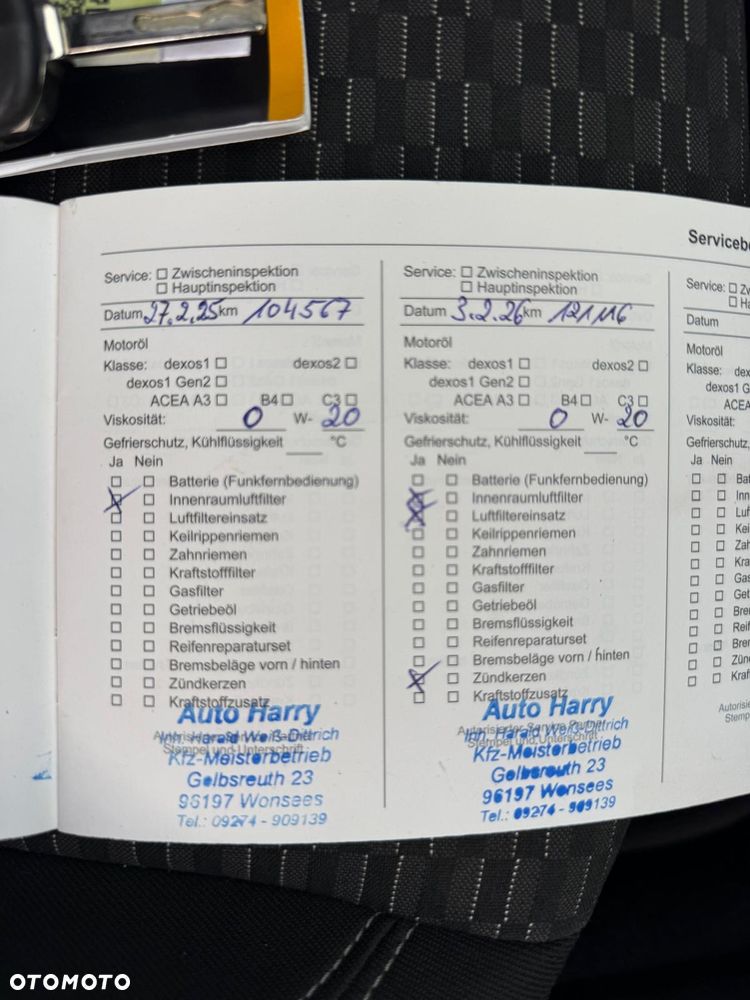 Servicebe
Service: Zwischeninspektion
Hauptinspektion
Datum 27.2.25 km 104567
Motoröl
Klasse: dexos1 dexos2
dexos1 Gen2
ACEA A3 B4 C3
Viskosität: 0 W- 20
Gefrierschutz, Kühlflüssigkeit °C
Ja Nein
Batterie (Funkfernbedienung)
Innenraumluftfilter
Luftfiltereinsatz
Keilrippenriemen
Zahnriemen
Kraftstofffilter
Gasfilter
Getriebeöl
Bremsflüssigkeit
Reifenreparaturset
Bremsbeläge vorn / hinten
Zündkerzen
Kraftstoffzusatz
Auto Harry
Inh. Harald Weiß-Dittrich
Stempel und Unterschrift
Kfz-Meisterbetrieb
Gelbsreuth 23
96197 Wonsees
Tel.: 09274 - 909139
Service: Zwischeninspektion
Hauptinspektion
Datum 3.2.26 km 121116
Motoröl
Klasse: dexos1 dexos2
dexos1 Gen2
ACEA A3 B4 C3
Viskosität: 0 W- 20
Gefrierschutz, Kühlflüssigkeit °C
Ja Nein
Batterie (Funkfernbedienung)
Innenraumluftfilter
Luftfiltereinsatz
Keilrippenriemen
Zahnriemen
Kraftstofffilter
Gasfilter
Getriebeöl
Bremsflüssigkeit
Reifenreparaturset
Bremsbeläge vorn / hinten
Zündkerzen
Kraftstoffzusatz
Auto Harry
Autorisierter Service Partner
Inh. Harald Weiß-Dittrich
Stempel und Unterschrift
Kfz-Meisterbetrieb
Gelbsreuth 23
96197 Wonsees
Tel.: 09274 - 909139
Service: Zw
Ha
Datum
Motoröl
Klasse: dex
dexos1 G
ACEA
Viskosität:
Gefrierschutz,
Ja Nein
Bat
Inn
Luf
Kei
Zah
Kra
Gas
Get
Bre
Reif
Bren
Zünd
Kraf
Autorisi
Stemp
OTOMOTO